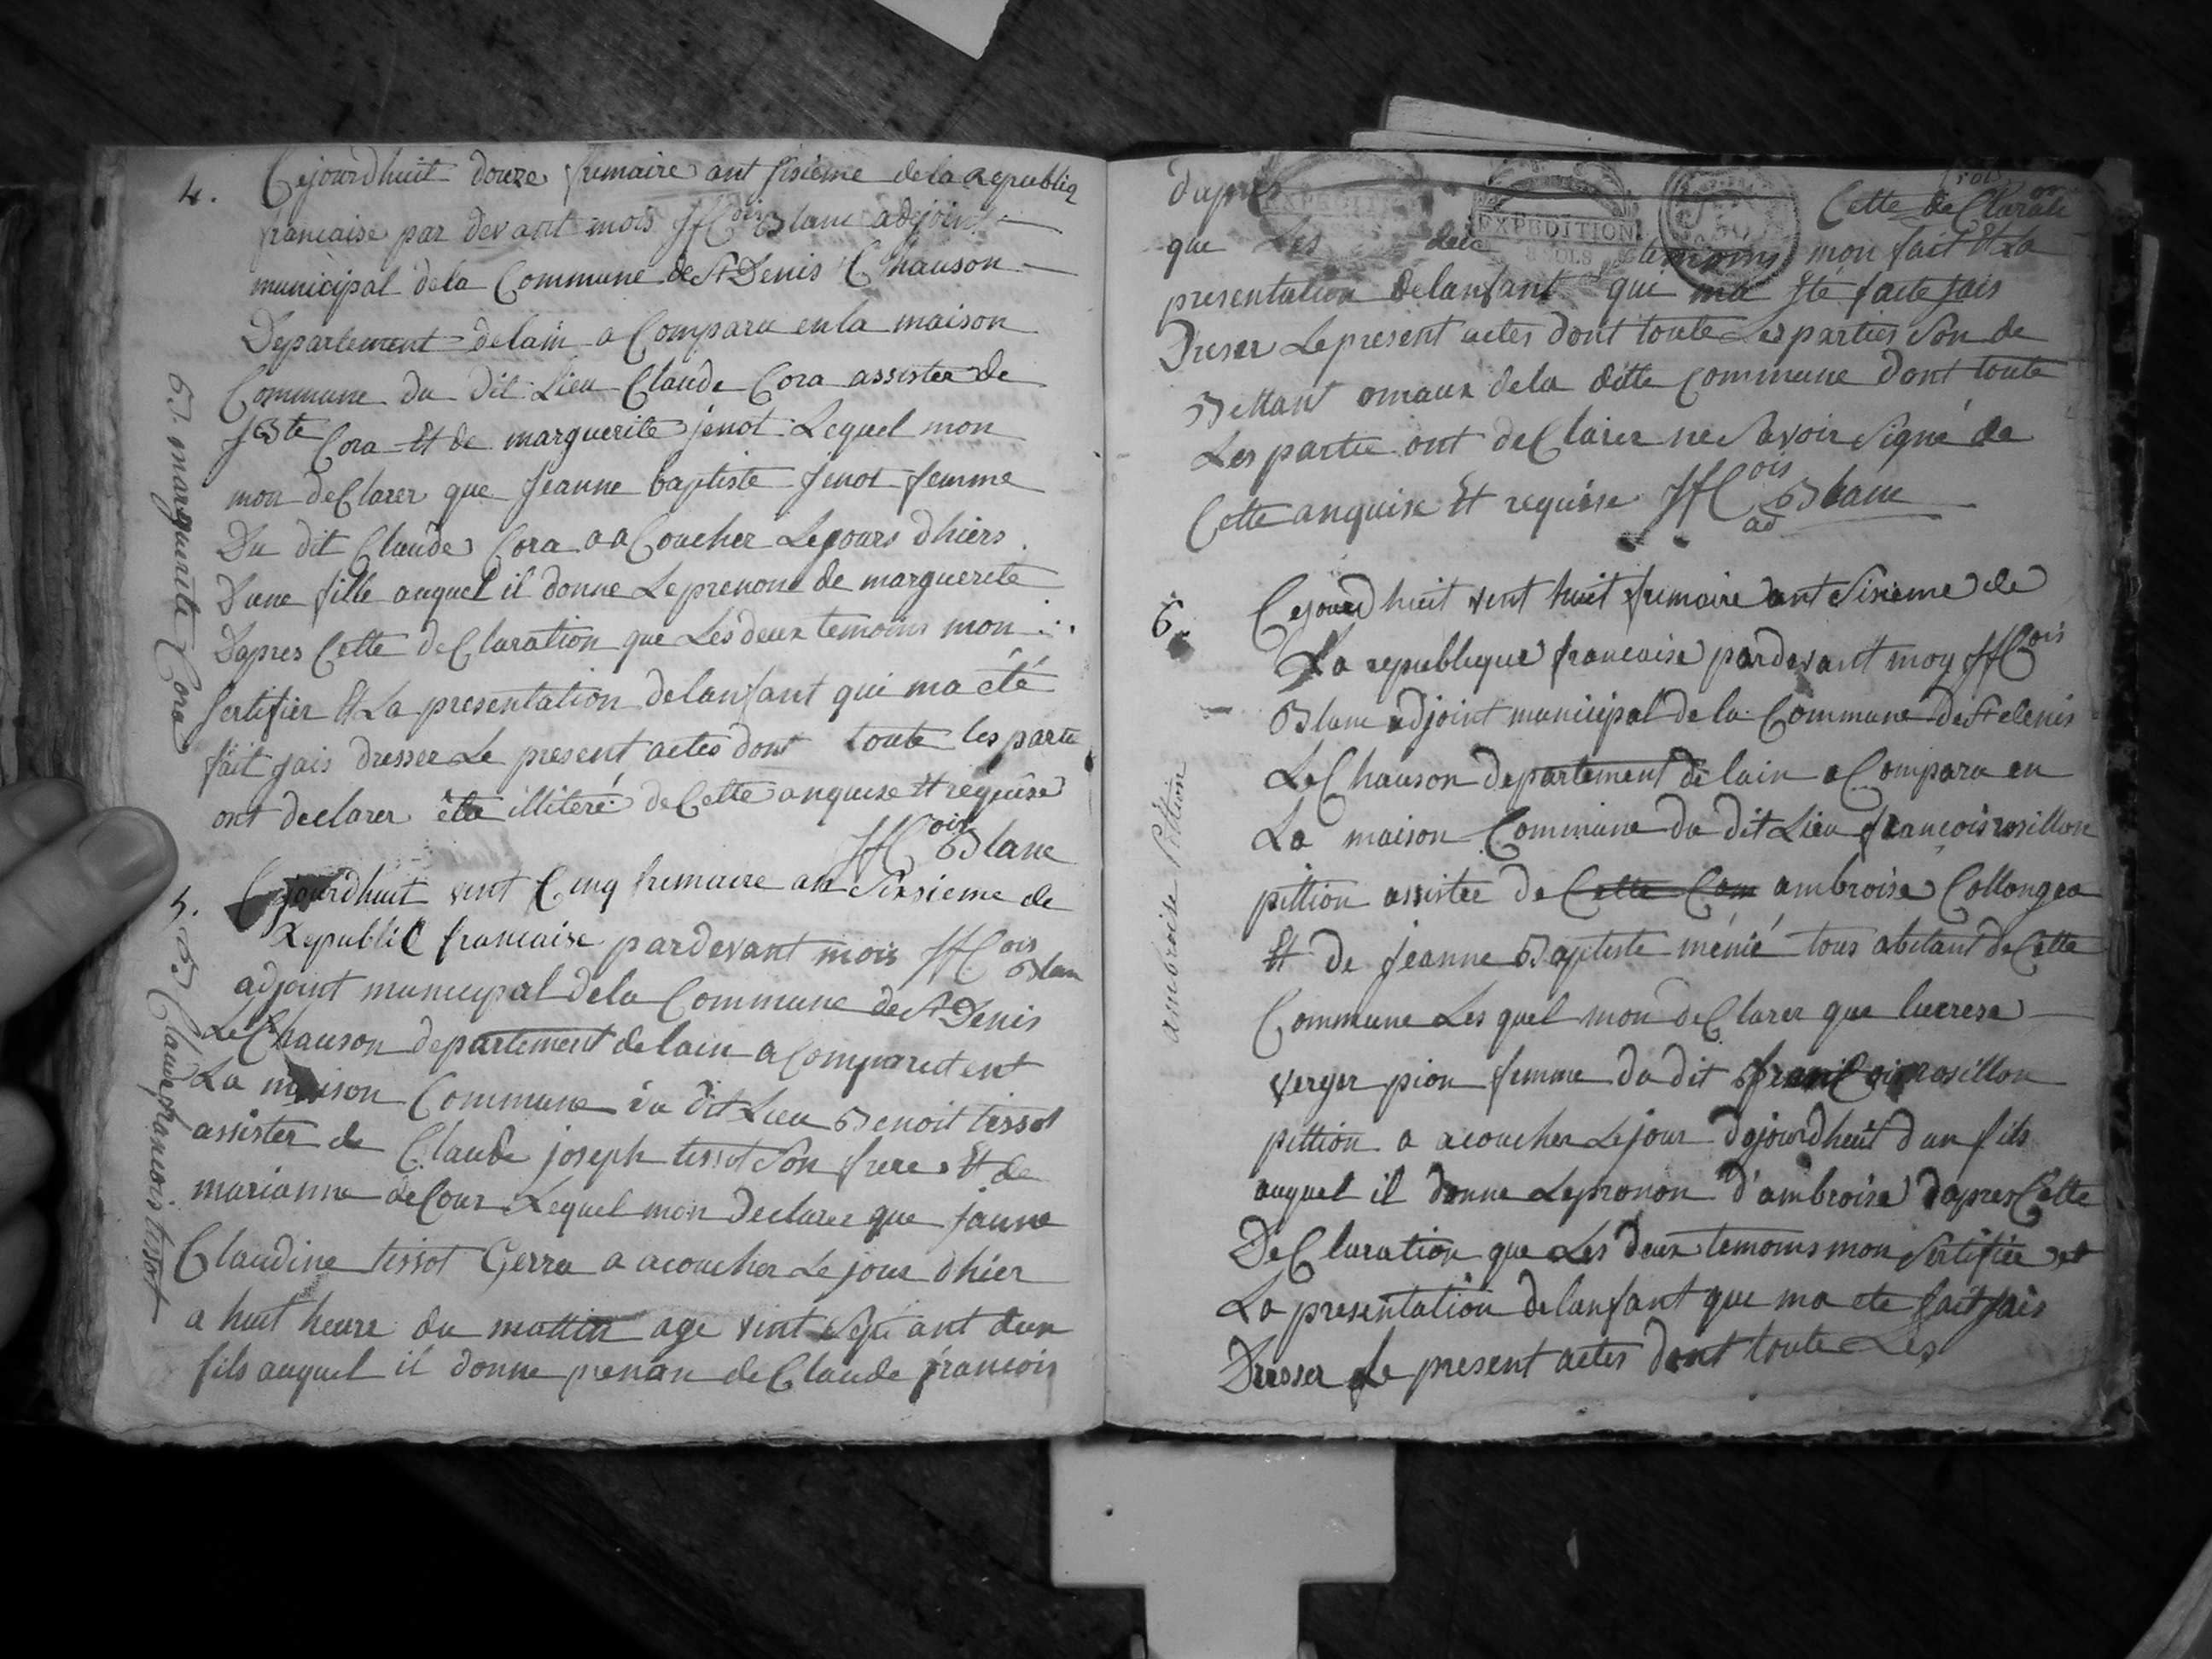 4. Cejourdhuit douze frimaire ant sisieme de la Republiq
francaise par devant mois JfCois Blanc adejoint
municipal de la Commune de St Denis C hauson
Departement delain a Comparu en la maison
Commune du dit Lieu Claude Cora assister de
JBte Cora Et de marguerite jenot Lequel mon
mon deClarer que jeanne baptiste jenot femme
Du dit Claude Cora a aCoucher Lejours dhiers
Dune fille auquel il donne Leprenom de marguerite
Dapres Cette deClaration que Les deux temoins mon
Sertifier Et La presentation delanfant qui ma été
fait jais dresser Le present actes dont toute les partie
ont declarer illiteré de Cette anquise Et requise
JfCois Blanc
B. marguerite Cora
5. Cejourdhuit vent Cinq frimaire an Sixsieme de
Republic francaise pardevant mois JfCois Blan
adjoint municipal dela Commune de St Denis
LeChauson departement delain a Comparut ent
La maison Commune du dit Lieu Benoit tissot
assister de Claude joseph tissot Son frere Et de
marianne deCour Lequel mon Declarer que jaune
Claudine tissot Gerra a acoucher Le jour dhier
a huit heure du mattin age vint Sept ant dun
fils auquel il donne prenon de Claude francois
B Claude francois tissot
dapres Cette deClaration
que Les deux temoins mon fait Et La
presentation delanfant qui ma Eté faite jais
Dreser Lepresent actes dont toute Les parties Son de
Bettant omaux dela ditte Commune Dont toute
Les partie ont deClarer ne Savoir Signé de
Cette anquise Et requise JfCois Blanc
ad
6. Cejourdhuit vent huit frimaire ant Sixieme de
La republique francaise pardevant moy JfCois
Blanc adjoint municipal de la Commune de St denis
LeChauson departement de lain a Comparu en
La maison Commune du dit Lieu francois rosillon
pittion assistée de Cette Com ambroise Collongea
Et de jeanne Baptiste ménié tous abitant de Cette
Commune Les quel mon deClarer que lucrese
verger pion femme du dit franCois rosillon
pittion a acoucher Lejour dojourdheuit dun fils
auquel il donne Lepronon d'ambroise dapres Cette
DeClaration que Les deux temoins mon Sertifiée et
La presentation delanfant que ma ete fait jais
Dresser Le present actes dont toute Les
ambroise Pittion
EXPEDITION
EXPEDITION
8 SOLS